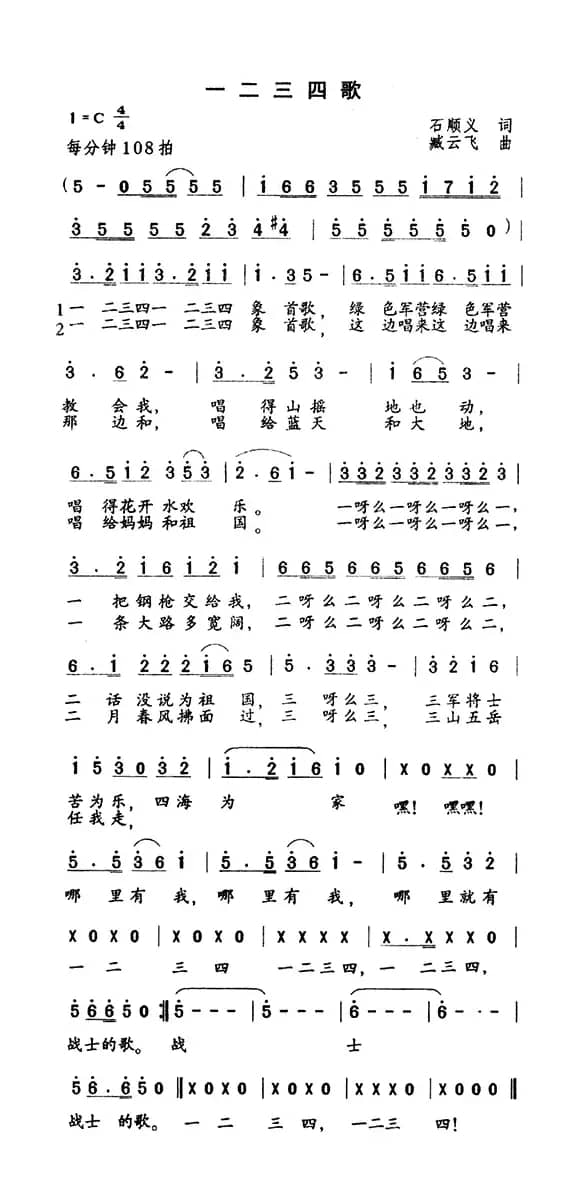 一二三四歌
1=C 4/4
石顺义 词
每分钟108拍
臧云飞 曲
(5 - 0 5 5 5 5 | 1 6 6 3 5 5 5 1 7 1 2 |
3 5 5 5 5 2 3 4 #4 | 5 5 5 5 5 5 5 0) |
3 . 2 1 1 3 . 2 1 1 | 1 . 3 5 - | 6 . 5 1 1 6 . 5 1 1 |
1一 二三四一 二三四 象 首歌, 绿 色军营绿 色军营
2一 二三四一 二三四 象 首歌, 这 边唱来这 边唱来
3 . 6 2 - | 3 . 2 5 3 - | 1 6 5 3 - |
教 会我, 唱 得山摇 地也 动,
那 边和, 唱 给蓝天 和大 地,
6 . 5 1 2 3 5 3 | 2 . 6 1 - | 3 3 2 3 3 2 3 3 2 3 |
唱 得花开 水欢 乐。 一呀么一呀么一呀么一,
唱 给妈妈 和祖 国。 一呀么一呀么一呀么一,
3 . 2 1 6 1 2 1 | 6 6 5 6 6 5 6 6 5 6 |
一 把钢枪交给我, 二呀么二呀么二呀么二,
一 条大路多宽阔, 二呀么二呀么二呀么二,
6 . 1 2 2 2 1 6 5 | 5 . 3 3 3 - | 3 2 1 6 |
二 话没说为祖 国, 三 呀么三, 三军将士
二 月春风拂面 过, 三 呀么三, 三山五岳
1 5 3 0 3 2 | 1 . 2 1 6 1 0 | X 0 X X 0 |
苦为乐, 四海 为 家 嘿! 嘿嘿!
任我走,
5 . 5 3 6 1 | 5 . 5 3 6 1 - | 5 . 5 3 2 |
哪 里有 我, 哪 里有 我, 哪 里就有
X 0 X 0 | X 0 X 0 | X X X X | X . X X X 0 |
一 二 三 四 一二三四, 一 二三四,
5 6 6 5 0 :‖ 5 - - - | 5 - - - | 6 - - - | 6 - · - |
战士的歌。 战 士
5 6 . 6 5 0 ‖ X 0 X 0 | X 0 X 0 | X X X 0 | X 0 0 0 ‖
战士 的歌。 一 二 三 四, 一二三 四!